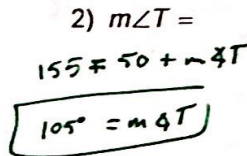 2) m∠T =
155 = 50 + m∡T
105° = m∡T